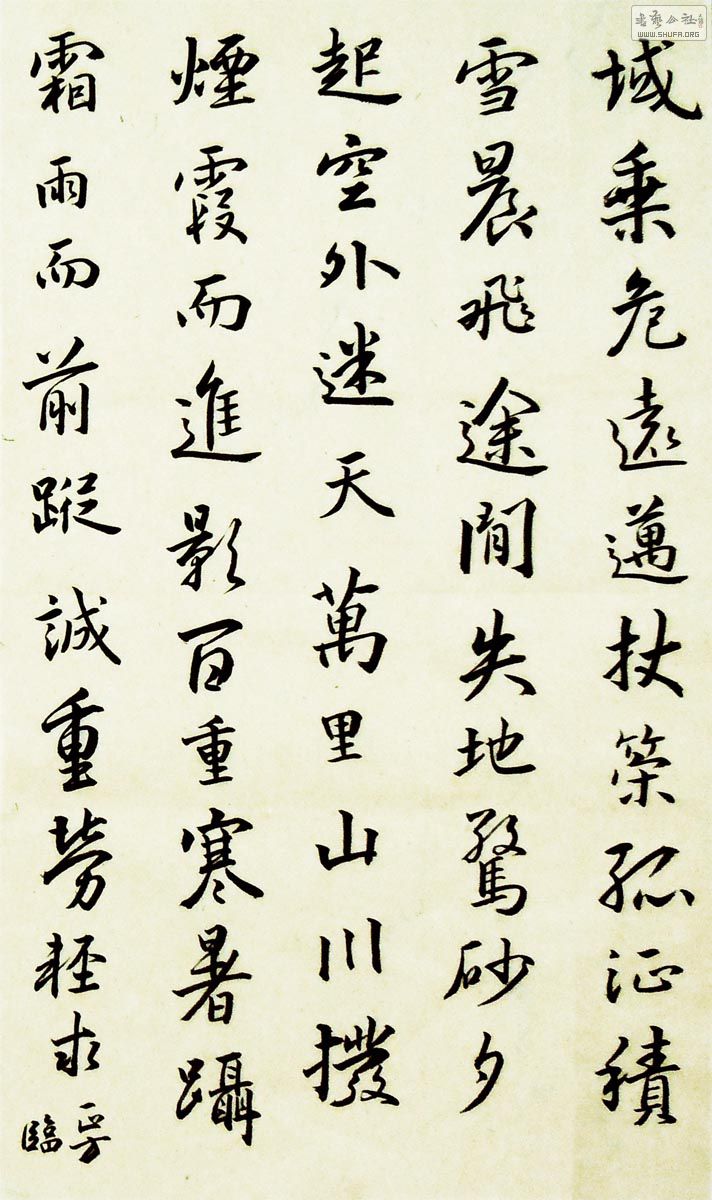 書藝公社
WWW.SHUFA.ORG
域乘危遠邁杖策孤征積
雪晨飛途間失地驚砂夕
起空外迷天萬里山川撥
煙霞而進影百重寒暑躡
霜雨而前蹤誠重勞輕求
臨